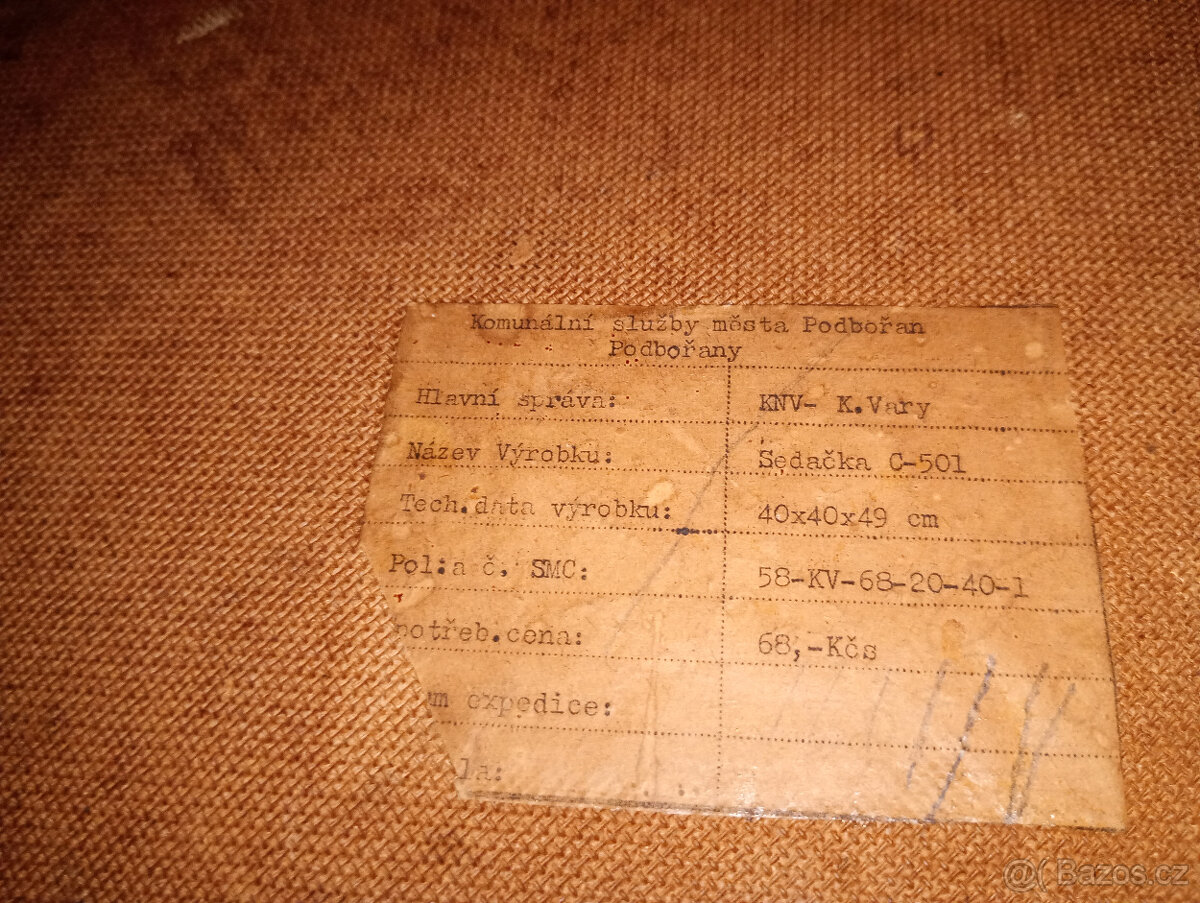 Komunální služby města Podbořan
Podbořany
Hlavní správa: KNV- K.Vary
Název Výrobku: Sedačka C-501
Tech.data výrobku: 40x40x49 cm
Pol:a č. SMC: 58-KV-68-20-40-1
potřeb.cena: 68,-Kčs
um expedice:
la:
@( Bazos.cz